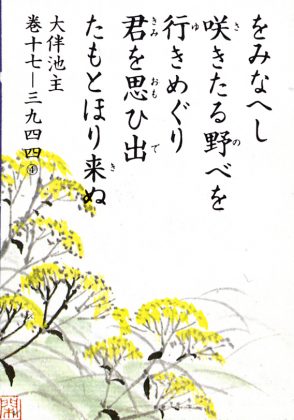 をみなへし
咲きたる野べを
行きめぐり
君を思ひ出
たもとほり来ぬ
大伴池主
巻十七―三九四四